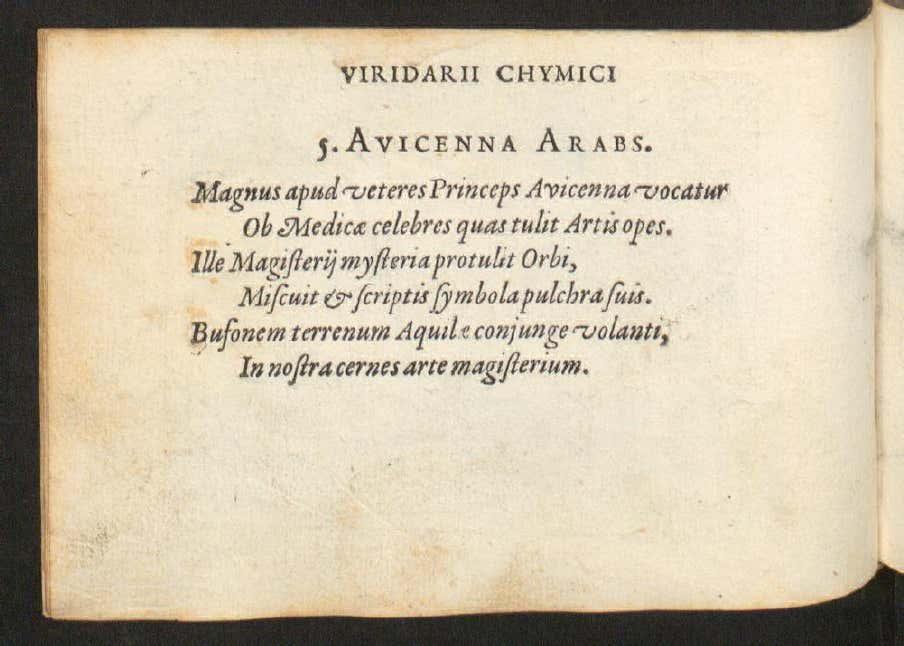 VIRIDARII CHYMICI
5. AVICENNA ARABS.
Magnus apud veteres Princeps Avicenna vocatur
Ob Medicæ celebres quas tulit Artis opes.
Ille Magiſterij myſteria protulit Orbi,
Miſcuit & ſcriptis ſymbola pulchra ſuis.
Bufonem terrenum Aquilæ conjunge volanti,
In noſtra cernes arte magiſterium.